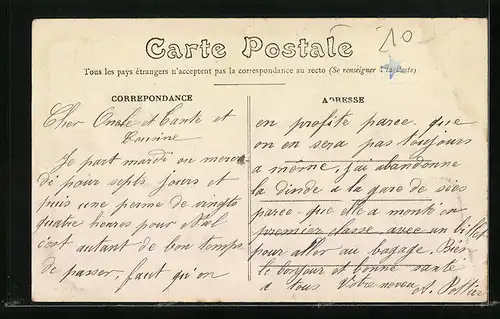 Carte Postale
10
Tous les pays étrangers n'acceptent pas la correspondance au recto (Se renseigner à la Poste)
CORREPONDANCE
Cher Oncle et Tante et
Cousine
Je part mardi ou mercre
di pour septs jours et
puis une perme de vingts
quatre heures pour Noël
c'est autant de bon temps
de passer, faut qu'on
ADRESSE
en profite parce que
on en sera pas toujours
a même, j'ai abandonne
la dinde a la gare de
parce que elle a monté en
première classe avec un billet
pour aller au bagage. Bien
le bonjour et bonne santé
a tous Votre neveu